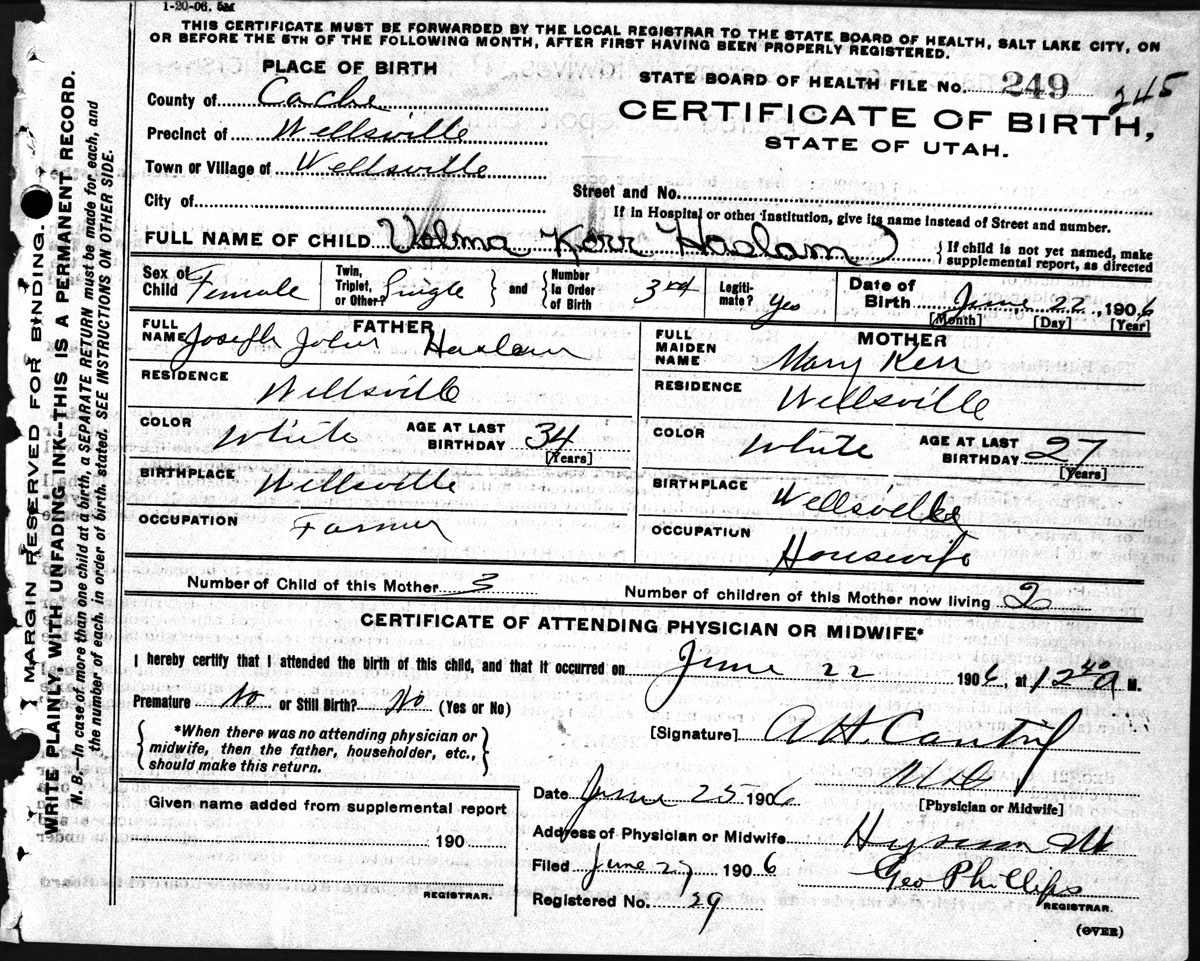 1-20-06. 5M
THIS CERTIFICATE MUST BE FORWARDED BY THE LOCAL REGISTRAR TO THE STATE BOARD OF HEALTH, SALT LAKE CITY, ON
OR BEFORE THE 5TH OF THE FOLLOWING MONTH, AFTER FIRST HAVING BEEN PROPERLY REGISTERED.
PLACE OF BIRTH
County of Cache
Precinct of Wellsville
Town or Village of Wellsville
City of
STATE BOARD OF HEALTH FILE No. 249 245
CERTIFICATE OF BIRTH,
STATE OF UTAH.
Street and No.
If in Hospital or other Institution, give its name instead of Street and number.
FULL NAME OF CHILD Velma Kerr Haslam } { If child is not yet named, make supplemental report, as directed
Sex of Child Female Twin, Triplet, or Other? Single } and { Number in Order of Birth 3rd Legitimate? Yes Date of Birth June 22, 1906
[Month] [Day] [Year]
FATHER
FULL NAME Joseph John Haslam
RESIDENCE
Wellsville
COLOR White AGE AT LAST BIRTHDAY 34
[Years]
BIRTHPLACE Wellsville
OCCUPATION Farmer
MOTHER
FULL MAIDEN NAME Mary Kerr
RESIDENCE
Wellsville
COLOR White AGE AT LAST BIRTHDAY 27
[Years]
BIRTHPLACE Wellsville
OCCUPATION
Housewife
Number of Child of this Mother 3 Number of children of this Mother now living 2
CERTIFICATE OF ATTENDING PHYSICIAN OR MIDWIFE*
I hereby certify that I attended the birth of this child, and that it occurred on June 22 1906, at 12 40 a M.
Premature No or Still Birth? No (Yes or No)
{ *When there was no attending physician or midwife, then the father, householder, etc., should make this return. }
[Signature] A H. Cantril
M D
[Physician or Midwife]
Date June 25 1906
Address of Physician or Midwife Hyrum Ut
Filed June 27, 1906 Geo Phillips
REGISTRAR.
Registered No. 29
(OVER)
Given name added from supplemental report
190
REGISTRAR.
MARGIN RESERVED FOR BINDING.
WRITE PLAINLY, WITH UNFADING INK--THIS IS A PERMANENT RECORD.
N. B.—In case of more than one child at a birth, a SEPARATE RETURN must be made for each, and
the number of each, in order of birth, stated. SEE INSTRUCTIONS ON OTHER SIDE.